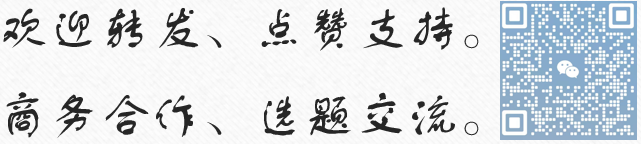 欢迎转发、点赞支持。
商务合作、选题交流。